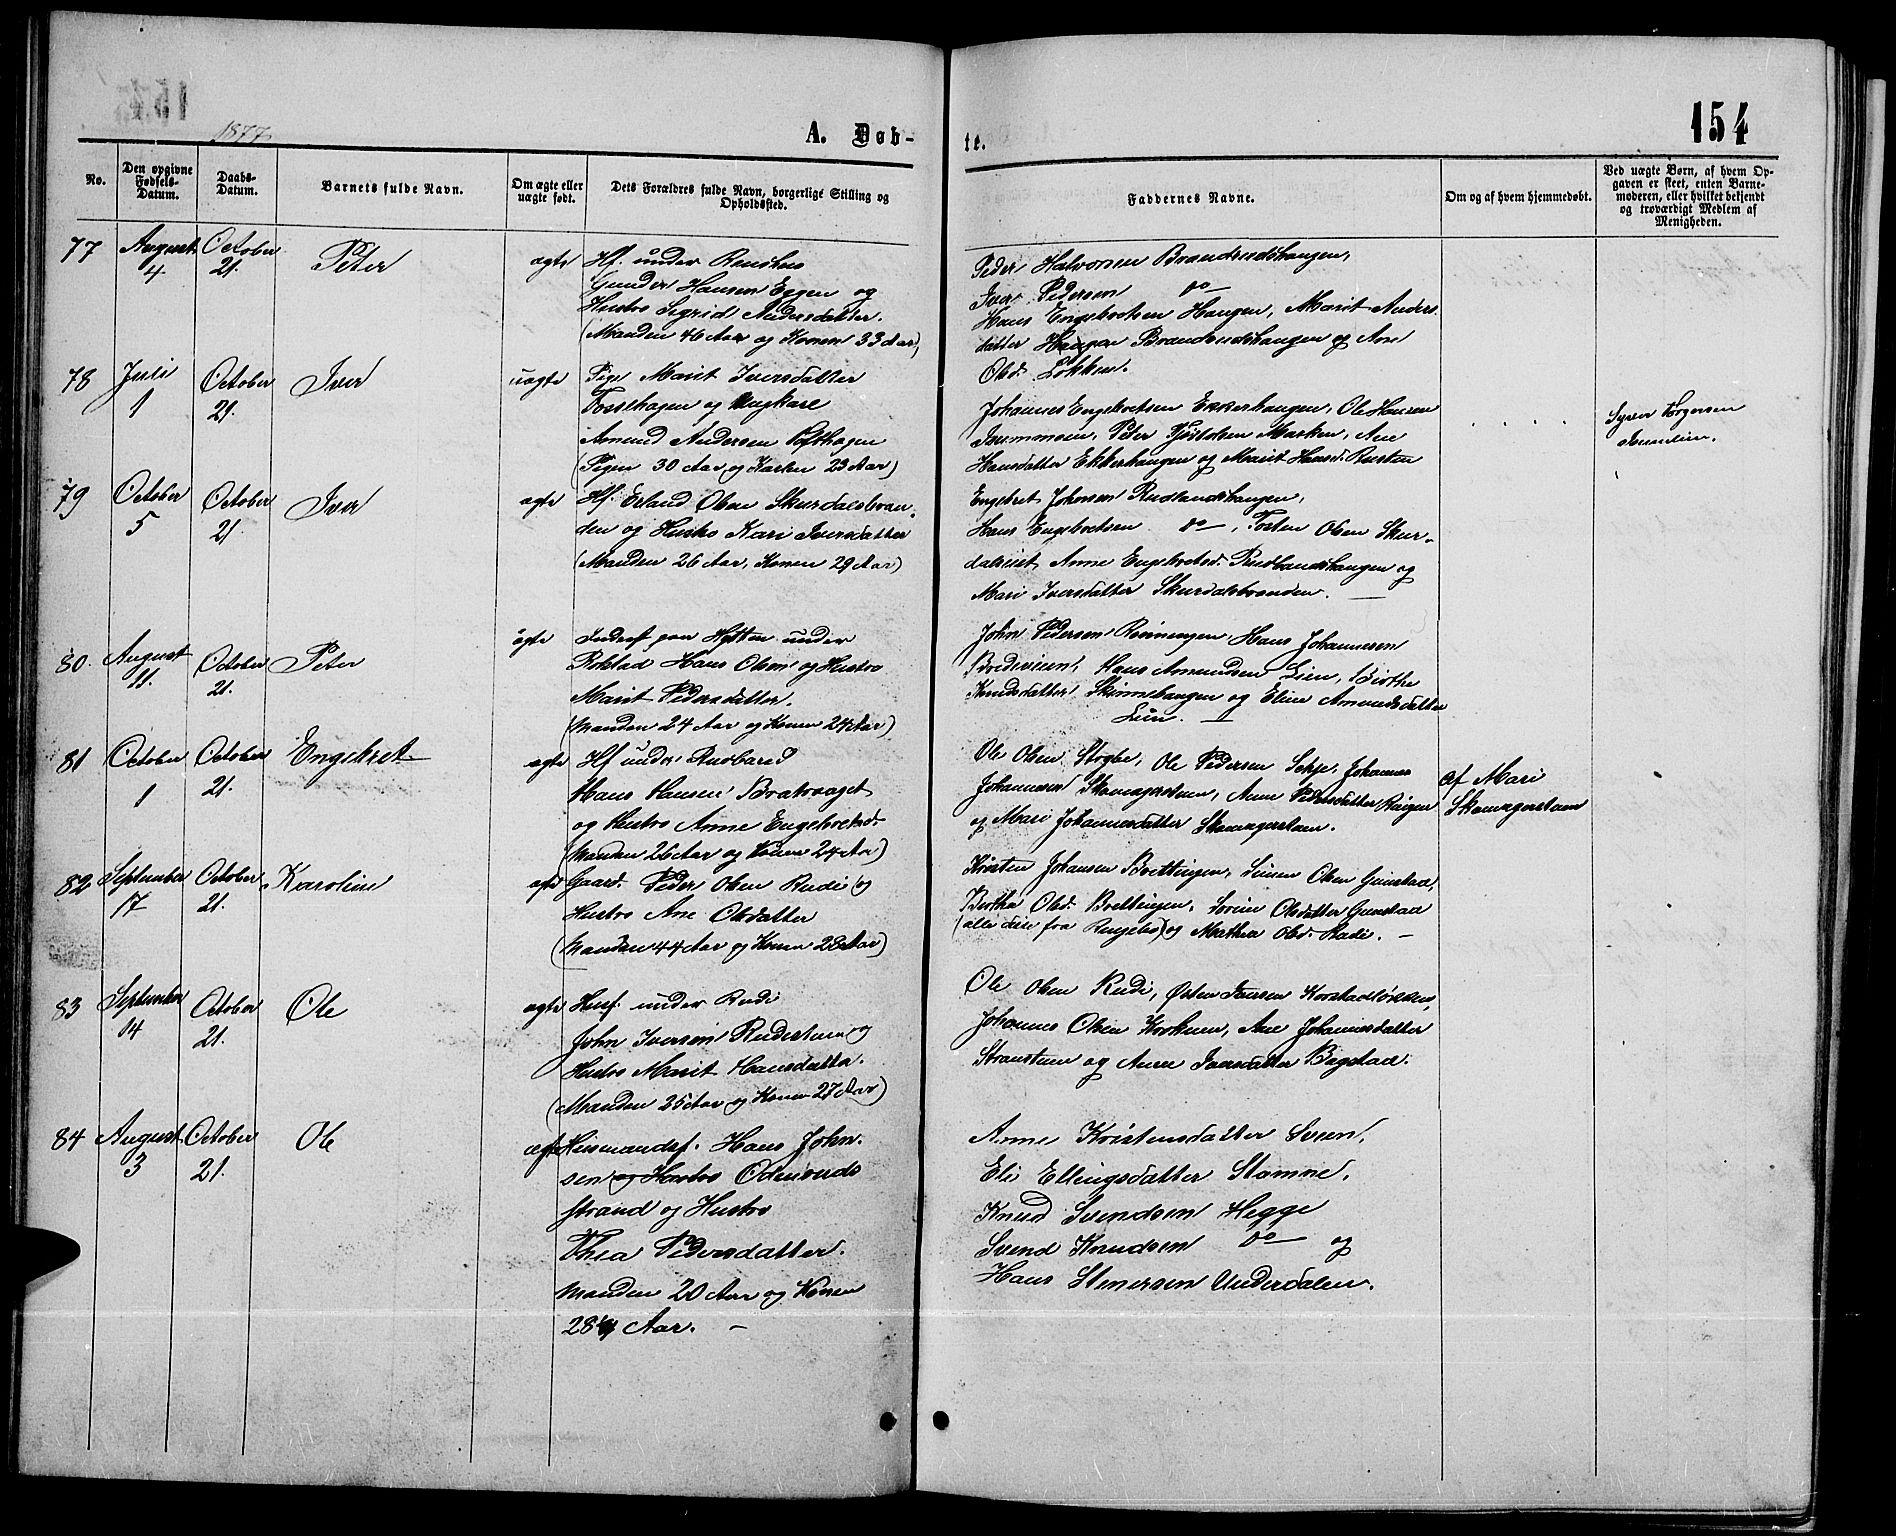 154
1877
A. Døb-
te.
No.
Den opgivne Fødsels-Datum.
Daabs-Datum.
Barnets fulde Navn.
Om ægte eller uægte født.
Dets Forældres fulde Navn, borgerlige Stilling og Opholdssted.
Faddernes Navne.
Om og af hvem hjemmedøbt.
Ved uægte Børn, af hvem Opgaven er skeet, enten Barnemoderen, eller hvilket bekjendt og troværdigt Medlem af Menigheden.
77 August 4 October 21. Peter ægte
Hf. under
Gunder Hansen Eggen og
Hustro Sigrid Andersdatter.
(Manden 46 Aar og Konen 33 Aar)
Peder Halvorsen Brandrudshaugen,
Iver Pedersen do
Hans Engebretsen Haugen, Marit Anders
datter Brandrudshaugen og Ane
Olsd. Løkken.
78 Juli 1 October 21. Iver uægte
Pige Marit Iversdatter
Fossehagen og Ungkarl
Amund Andersen Lofthagen
(Pigen 30 Aar og Karlen 23 Aar)
Johannes Engebretsen Ekkerhaugen, Ole Hansen
Peter Masken, Ane
Hansdatter Ekkerhaugen og Marit Hansd. Rusten
79 October 5 October 21. Iver ægte
Hf. Erland Olsen Skurdalsbran-
den og Hustro Kari Iversdatter
(Manden 26 Aar, Konen 29 Aar)
Engebret Johnsen Rudlandshaugen,
Hans Engebretsen do, Tosten Olsen Skur-
Anne Engebretsd. Rudlandshaugen og
Mari Iversdatter Skurdalsbranden.
80. August 11. October 21. Peter ægte
Inderst paa Hytten under
Rokstad Hans Olsen og Hustro
Marit Pedersdatter.
(Manden 24 Aar og Konen 24 Aar)
John Pedersen Rønningen Hans Johannesen
Hans Amundsen Lien, Birthe
Knudsdatter Skinnehaugen og Eline Amundsdatter
Lien.
81 October 1 October 21. Engebret ægte
Hf under
Hans Hansen
og Hustro Anne Engebretsd.
(Manden 26 Aar og Konen 24 Aar)
Ole Olsen Ole Pedersen Johannes
Johannesen Anne Pedersdatter
og Mari Johannesdatter
af Mari
82 September 17 October 21. Karoline ægte
Gaard. Peder Olsen Rudi og
Hustro Ane Olsdatter
(Manden 44 Aar og Konen 28 Aar)
Kristen Johansen Brettingen, Simen Olsen Gunstad,
Berthe Olsd. Brettingen, Sørine Olsdatter Gunstad
(alle disse fra Ringebo) og Mathea Olsd. Rudi.
83 September 14 October 21. Ole ægte
Husf. under Rudi
John Iversen Rudistuen og
Hustro Marit Hansdatter.
(Manden 25 Aar og Konen 27 Aar)
Ole Olsen Rudi, Østen Korstadløkken,
Johannes Olsen Ane Johannesdatter
og Anne Iversdatter Bogstad.
84 August 3 October 21. Ole ægte
Husmandsf. Hans John-
sen og Hustro Odenruds
strand og Hustro
Thea Pedersdatter.
Manden 20 Aar og Konen
28 Aar.
Anne Kristensdatter Sveen,
Eli Ellingsdatter Stamne,
Knud Svendsen Hegge
Svend Knudsen do og
Hans Stenersen Underdalen.